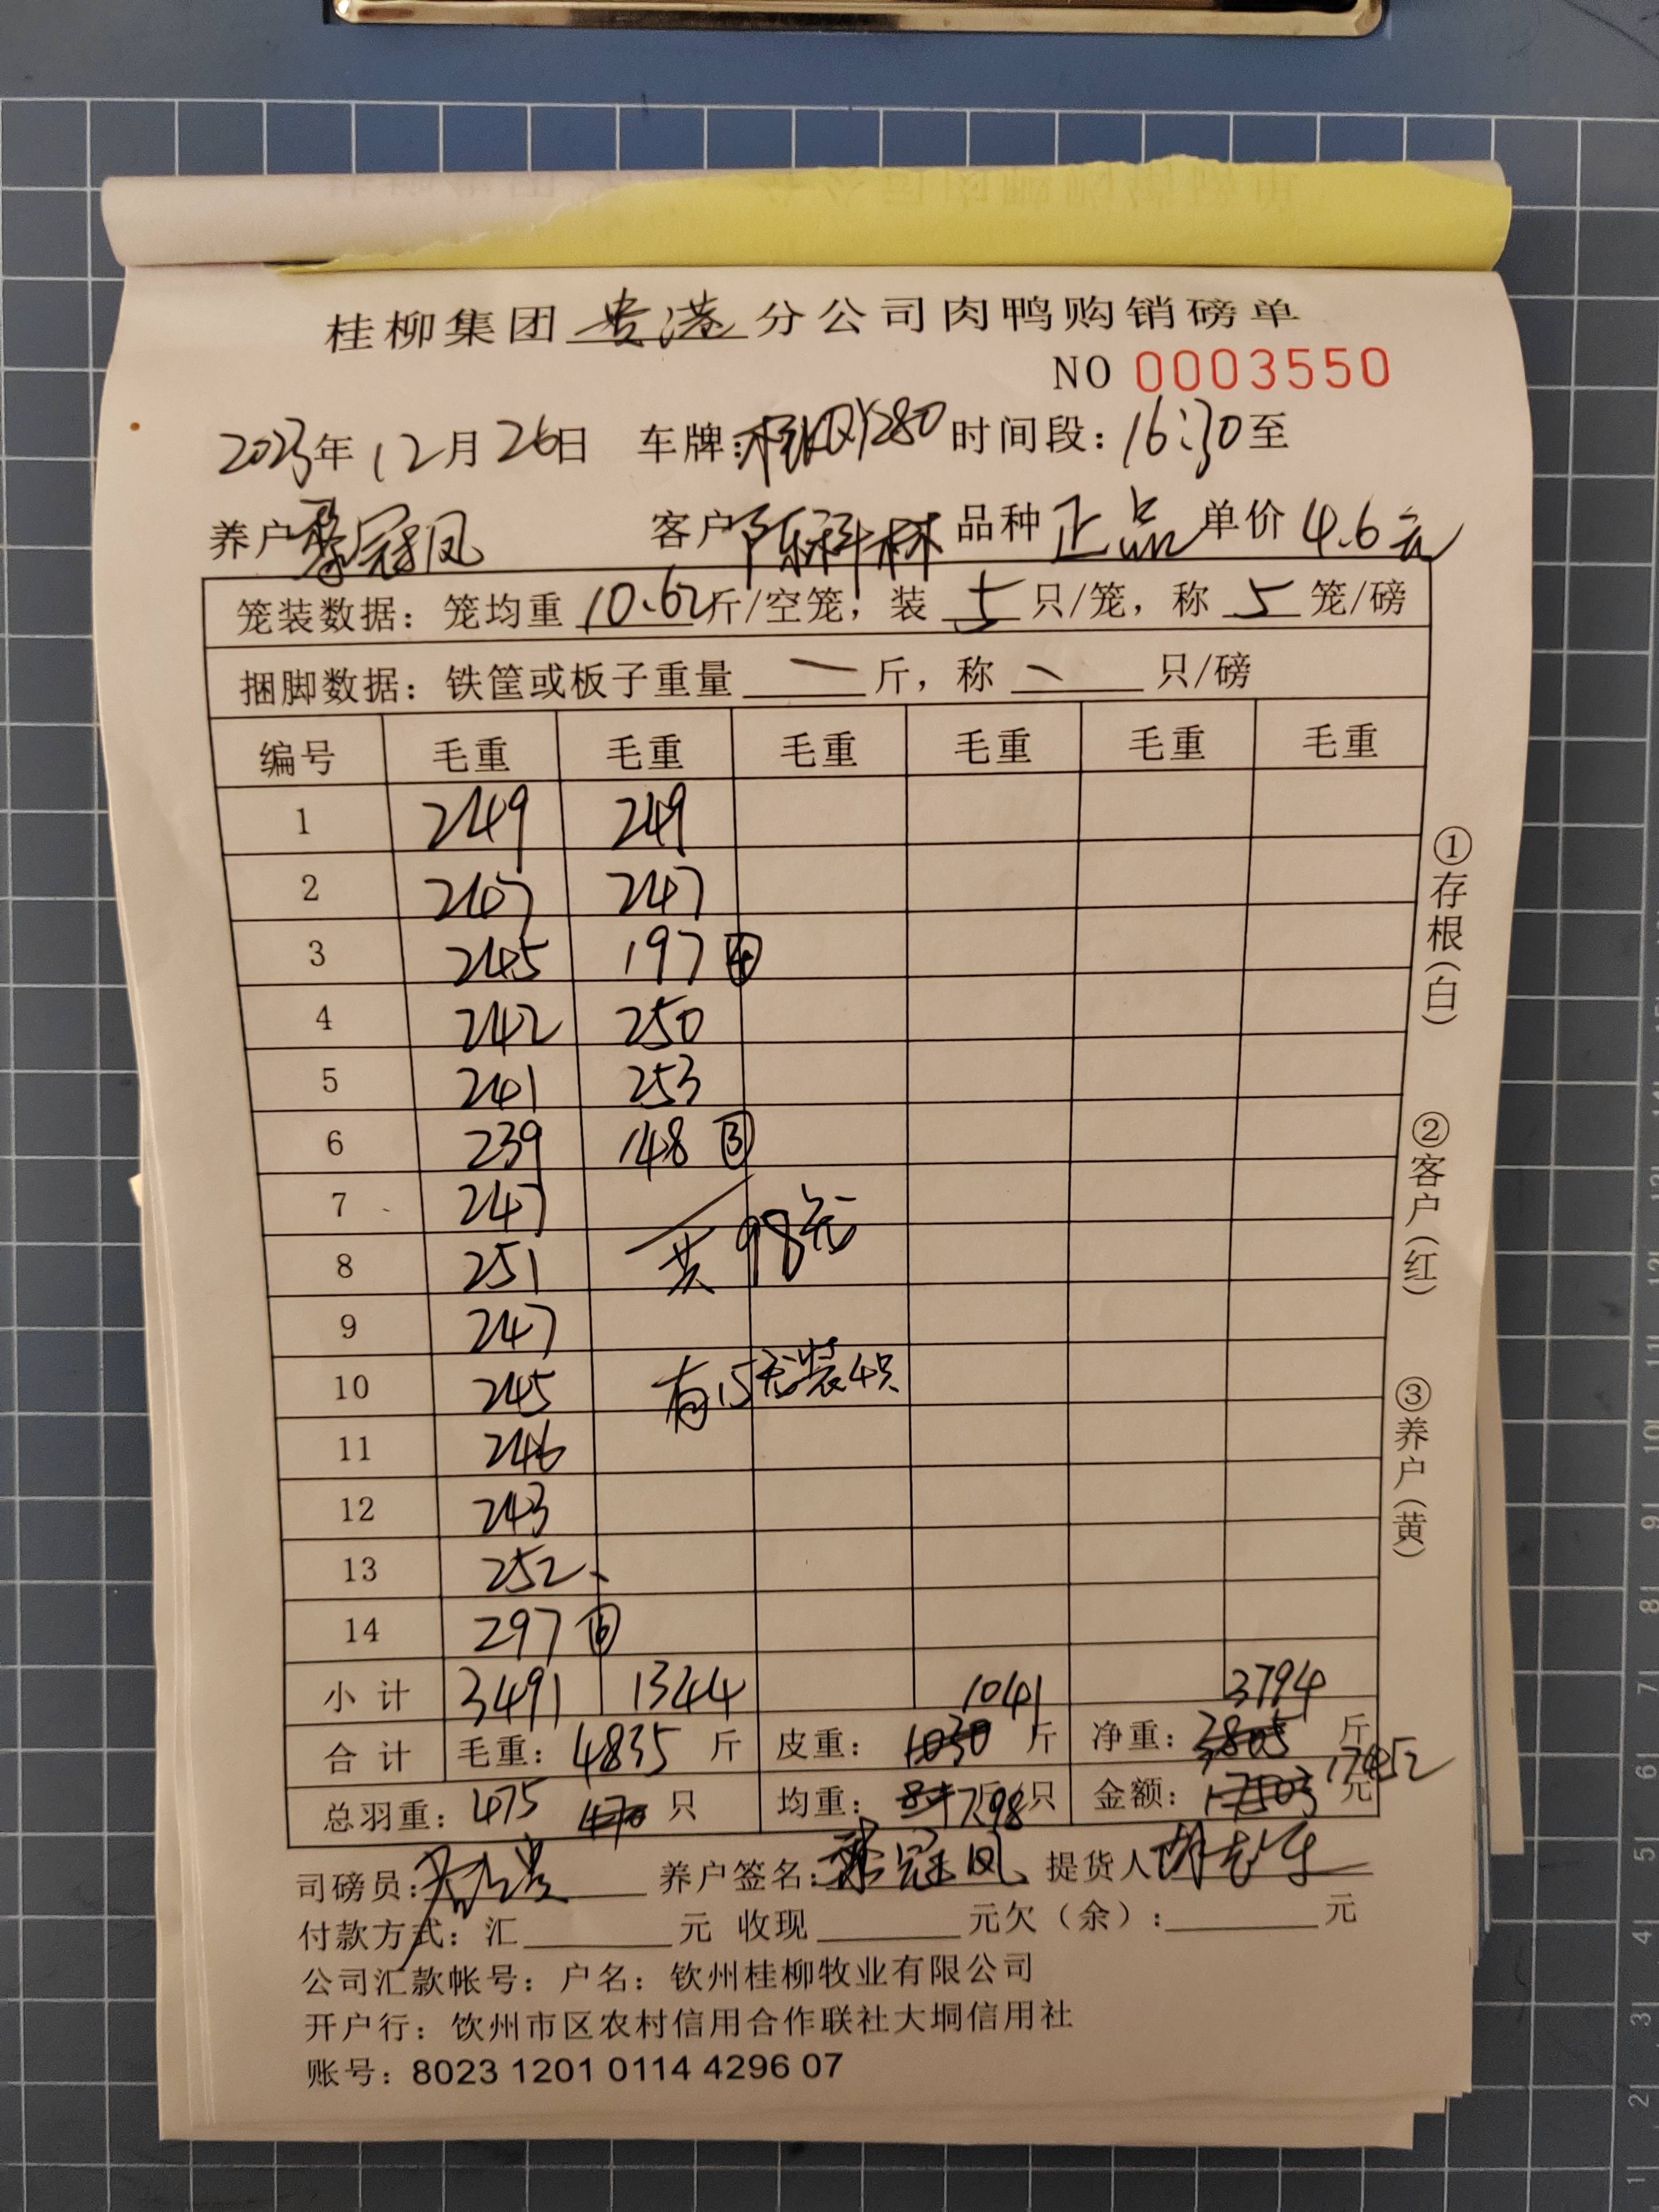 桂柳集团 贵港 分公司肉鸭购销磅单
NO 0003550
2023年 12月 26日 车牌: Y280 时间段: 16:30至
养户 冠凤 客户 陈科林 品种 正品 单价 4.6元
笼装数据: 笼均重 10.62斤/空笼, 装 5 只/笼, 称 5 笼/磅
捆脚数据: 铁筐或板子重量 一 斤, 称 、 只/磅
编号 毛重 毛重 毛重 毛重 毛重 毛重
1 249 249
2 247 247
3 245 197 ④
4 242 250
5 241 253
6 239 148 ③
7 247
8 251 共98笼
9 247
10 245 有15笼装4只
11 246
12 243
13 252
14 297 ⑥
小计 3491 1344 1041 3794
合计 毛重: 4835 斤 皮重: 1030 斤 净重: 3805 斤
总羽重: 475 470 只 均重: 7.98 斤/只 金额: 17503 元 17452
司磅员: 养户签名: 冠凤 提货人
付款方式: 汇 元 收现 元欠(余): 元
公司汇款帐号: 户名: 钦州桂柳牧业有限公司
开户行: 饮州市区农村信用合作联社大垌信用社
账号: 8023 1201 0114 4296 07
①存根(白) ②客户(红) ③养户(黄)